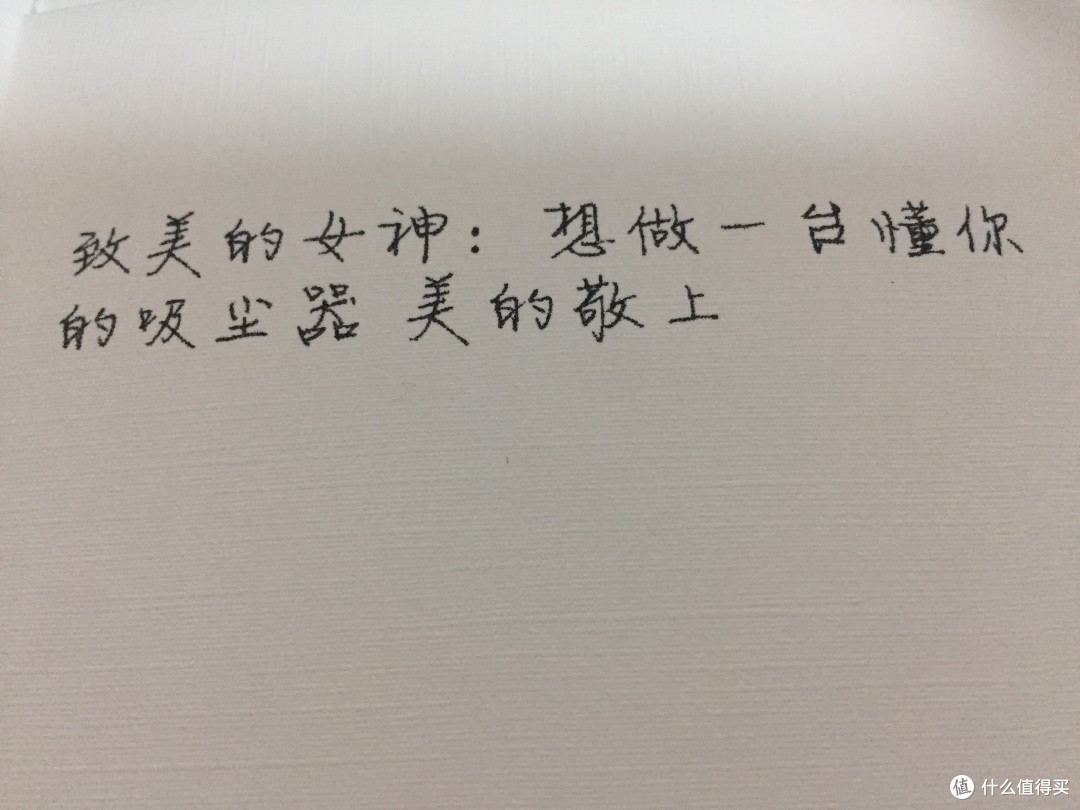 致美的女神：想做一台懂你
的吸尘器 美的敬上
值 什么值得买